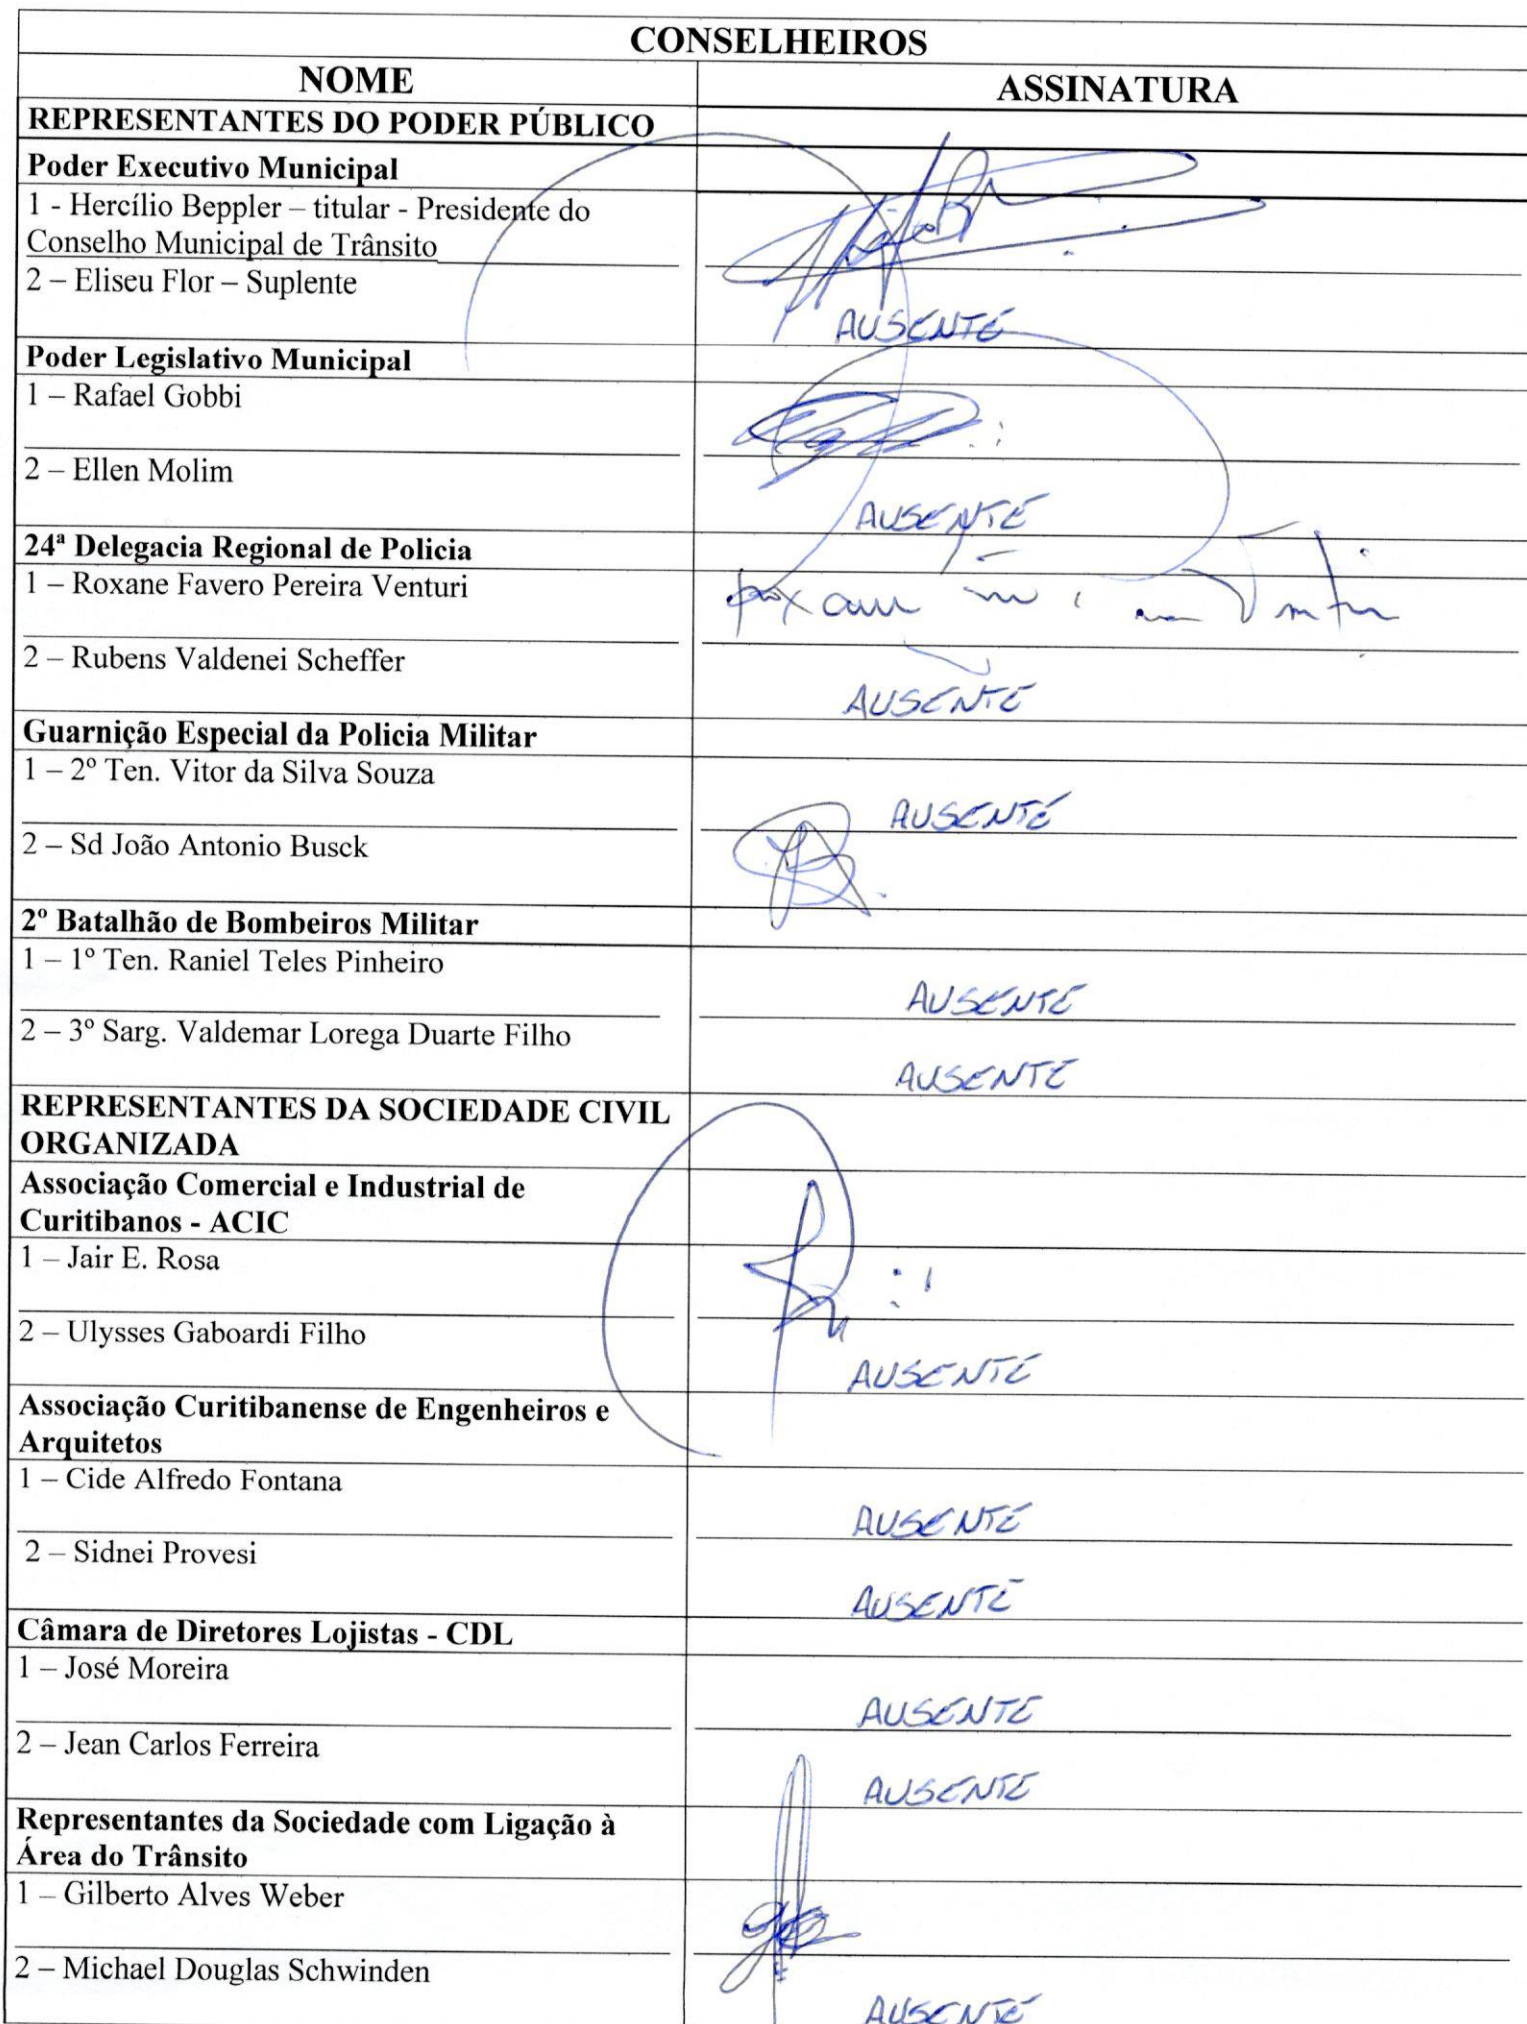 CONSELHEIROS
NOME
ASSINATURA
REPRESENTANTES DO PODER PÚBLICO
Poder Executivo Municipal
1 - Hercílio Beppler – titular - Presidente do
Conselho Municipal de Trânsito
2 – Eliseu Flor – Suplente
AUSENTE
Poder Legislativo Municipal
1 – Rafael Gobbi
2 – Ellen Molim
AUSENTE
24ª Delegacia Regional de Policia
1 – Roxane Favero Pereira Venturi
2 – Rubens Valdenei Scheffer
AUSENTE
Guarnição Especial da Policia Militar
1 – 2º Ten. Vitor da Silva Souza
AUSENTE
2 – Sd João Antonio Busck
2º Batalhão de Bombeiros Militar
1 – 1º Ten. Raniel Teles Pinheiro
AUSENTE
2 – 3º Sarg. Valdemar Lorega Duarte Filho
AUSENTE
REPRESENTANTES DA SOCIEDADE CIVIL
ORGANIZADA
Associação Comercial e Industrial de
Curitibanos - ACIC
1 – Jair E. Rosa
2 – Ulysses Gaboardi Filho
AUSENTE
Associação Curitibanense de Engenheiros e
Arquitetos
1 – Cide Alfredo Fontana
AUSENTE
2 – Sidnei Provesi
AUSENTE
Câmara de Diretores Lojistas - CDL
1 – José Moreira
AUSENTE
2 – Jean Carlos Ferreira
AUSENTE
Representantes da Sociedade com Ligação à
Área do Trânsito
1 – Gilberto Alves Weber
2 – Michael Douglas Schwinden
AUSENTE